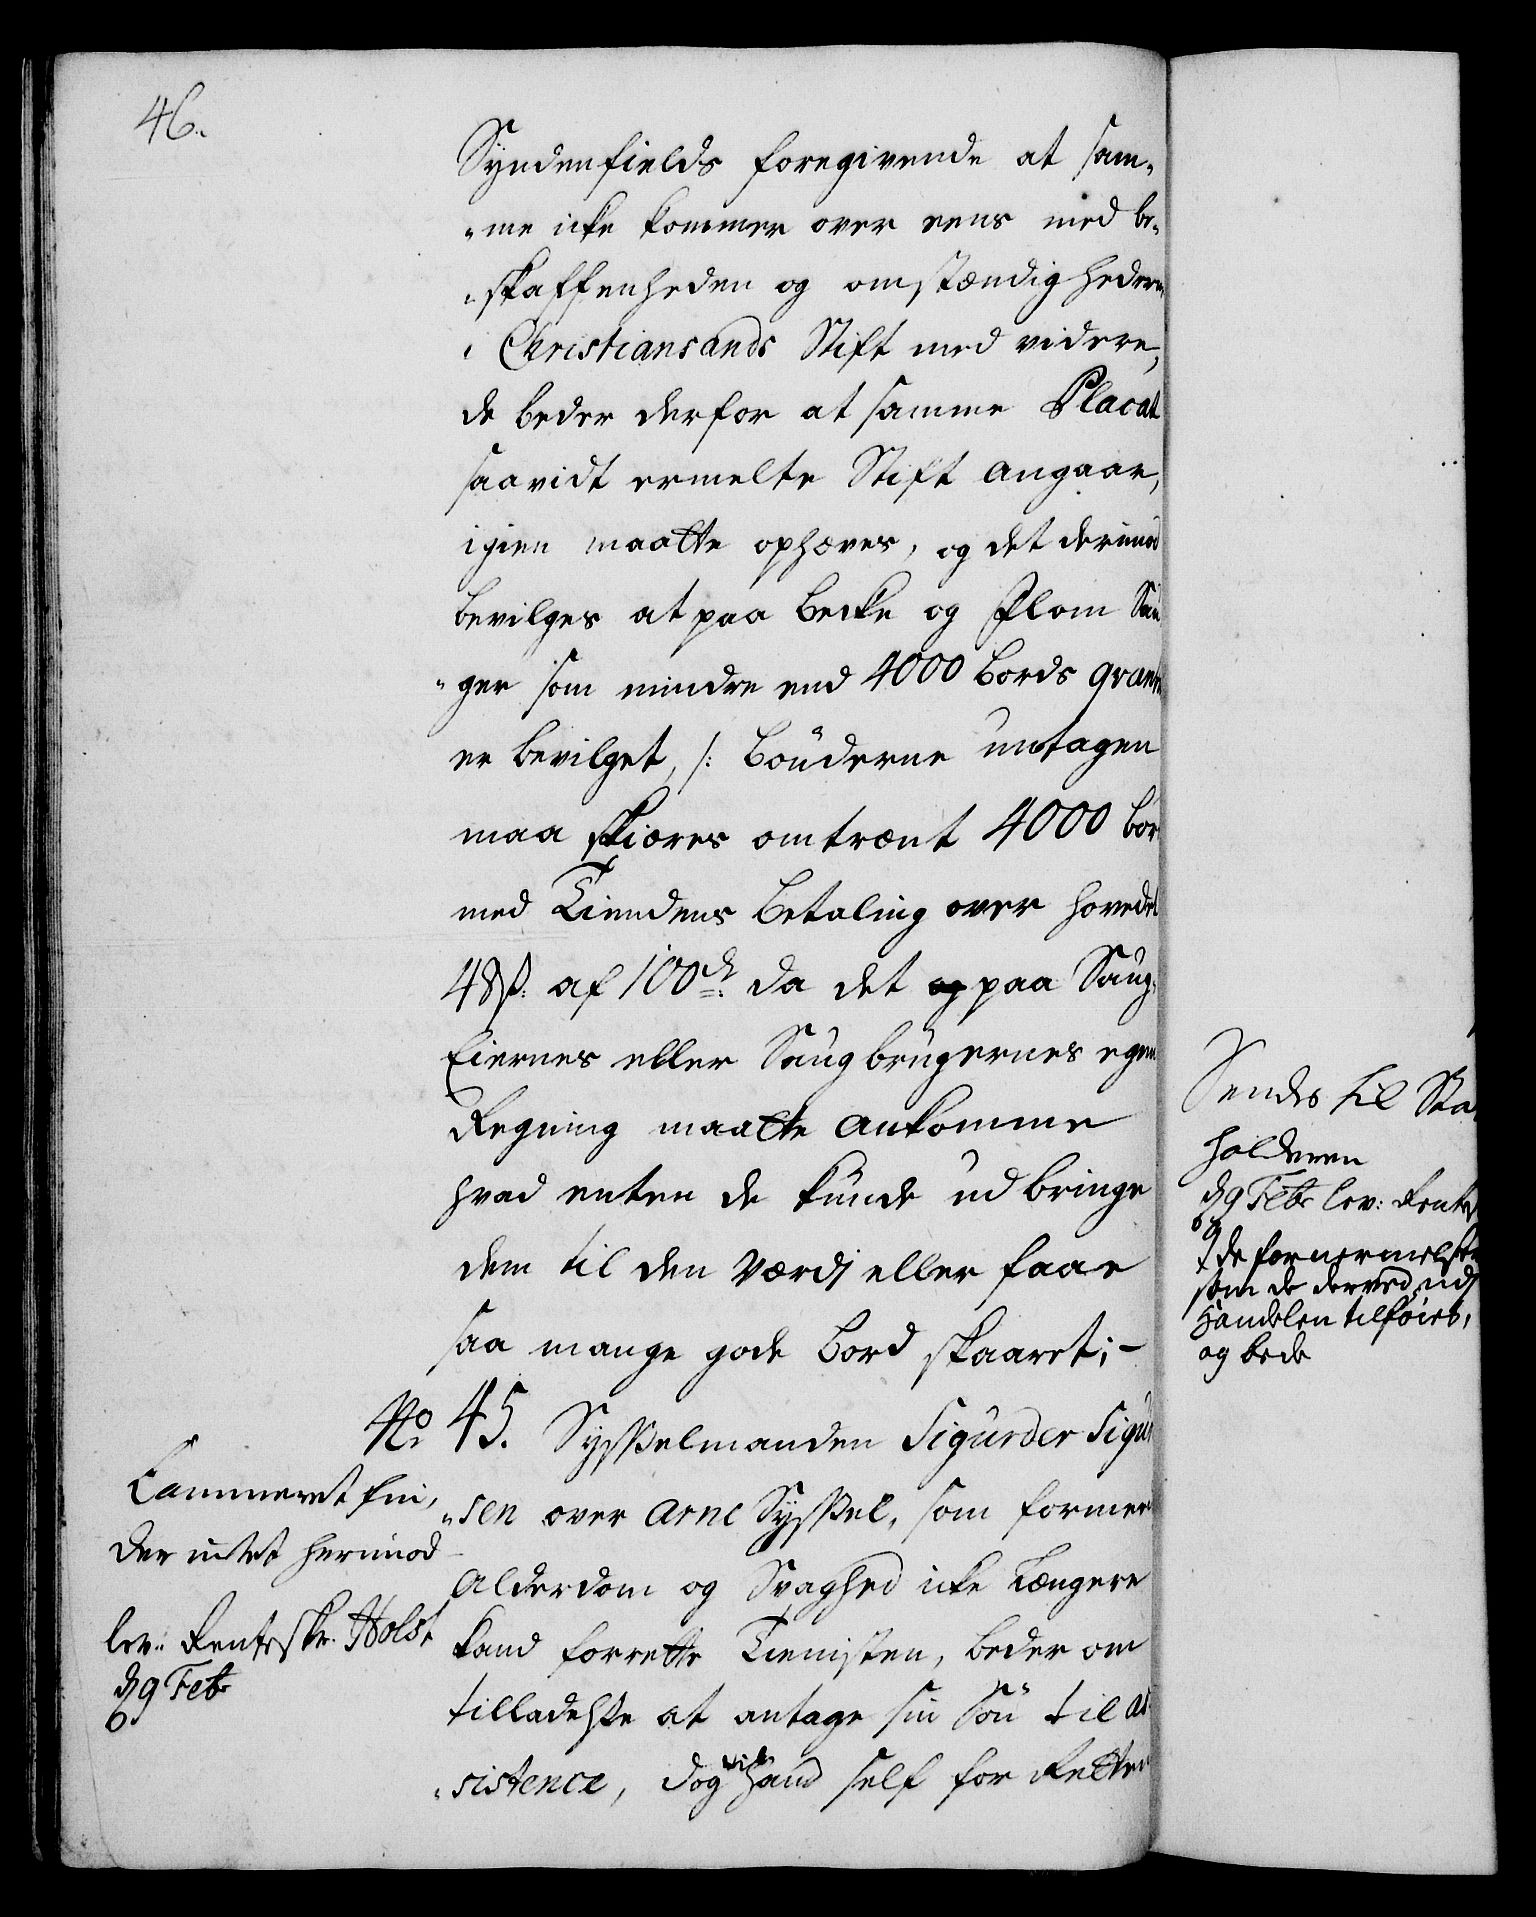 46.
Syndenfields foregivende at sam-
-me icke kommer over eens med be-
-skaffenheden og omstændigheder
i Christiansands Stift med videre,
de beder derfor at samme Placat
saavidt ermelte Stift angaar,
igien maatte ophæves, og det derimod
bevilges at paa Becke og Flom Sau
-ger som mindre end 4000 Bords qvant
er bevilget, /: Bönderne untagen
maa skiæres omtrænt 4000 bor
med Tiendens Betaling over hovedet
48 s: af 100de da det og paa Saug-
Eiernes eller Saugbrugernes egen
Regning maatte ankomme
hvad enten de kunde udbringe
dem til den Værdj eller faae
saa mange gode Bord skaaret; -
No 45. Sysselmanden Sigurder Sigur
-sen over Arne Syssel, som formed
Alderdom og Svaghed icke Længere
kand forrette Tienisten, beder om
tilladelse at antage sin Sön til as
-sistence, dog hand self for Retten
Cammeret fin-
der intet herimod
lev: Renteskr. Holst
d 9 Febr
Sendes til Sta
holderen
d 9 Febr lev: Rentes
de fornermelser
som de derved udj
Handelen tilföies,
og bede